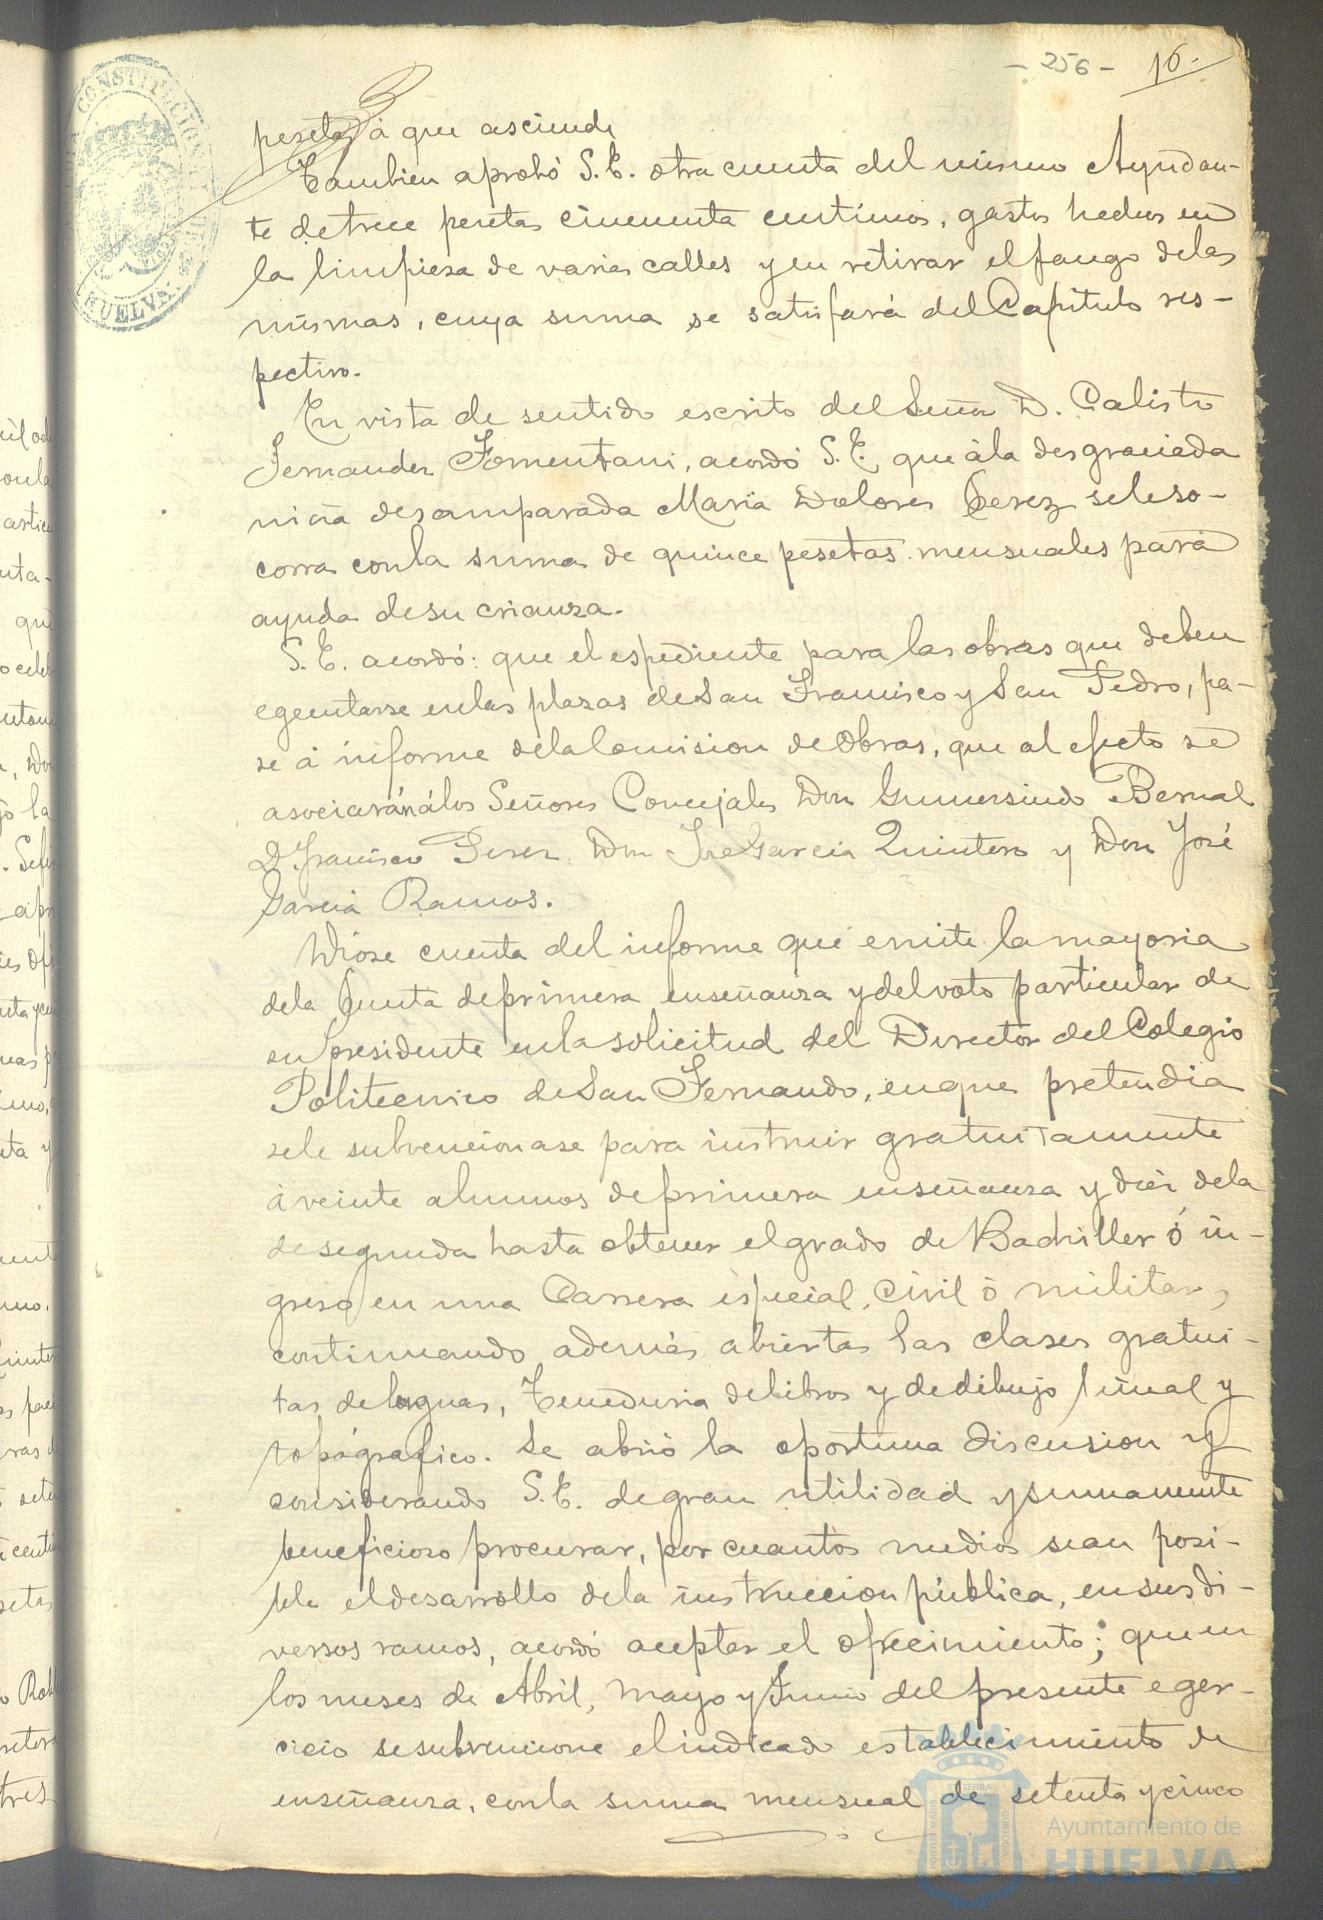 - 256 - 16.
pesetas á que asciende
Tambien aprobó S. E. otra cuenta del mismo Ayudan-
te de trece pesetas cincuenta centimos, gastos hechos en
la limpieza de varias calles y en retirar el fango de las
mismas, cuya suma se satisfará del Capitulo res-
pectivo.
En vista de sentido escrito del Señor D. Calisto
Fernandez Fomentani, acordó S. E. que á la desgraciada
niña desamparada Maria Dolores Perez se le so-
corra con la suma de quince pesetas mensuales para
ayuda de su crianza.
S. E. acordó: que el espediente para las obras que deben
egecutarse en las plazas de San Francisco y San Pedro, pa-
se á informe de la Comision de Obras, que al efecto se
asociarán á los Señores Concejales Don Gumersindo Bernal
D. Francisco Perez, Don José Garcia Quintero y Don José
Garcia Ramos.
Diose cuenta del informe que emite la mayoria
de la Junta de primera enseñanza y del voto particular de
su presidente en la solicitud del Director del Colegio
Politecnico de San Fernando, en que pretendia
se le subvencionase para instruir gratuitamente
á veinte alumnos de primera enseñanza y diez de la
de segunda hasta obtener el grado de Bachiller ó in-
greso en una Carrera especial, civil ó militar,
continuando además abiertas las clases gratui-
tas de lenguas, Teneduria de libros y de dibujo lineal y
topógrafico. Se abrió la oportuna discusion y
considerando S. E. de gran utilidad y sumamente
beneficioso procurar, por cuantos medios sean posi-
ble el desarrollo de la instruccion pública, en sus di-
versos ramos, acordó aceptar el ofrecimiento; que en
los meses de Abril, Mayo y Junio del presente eger-
cicio se subvencione el indicado establecimiento de
enseñanza, con la suma mensual de setenta y cinco
Ayuntamiento de
HUELVA